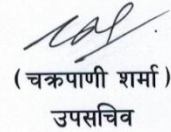 ( चक्रपाणी शर्मा )
उपसचिव